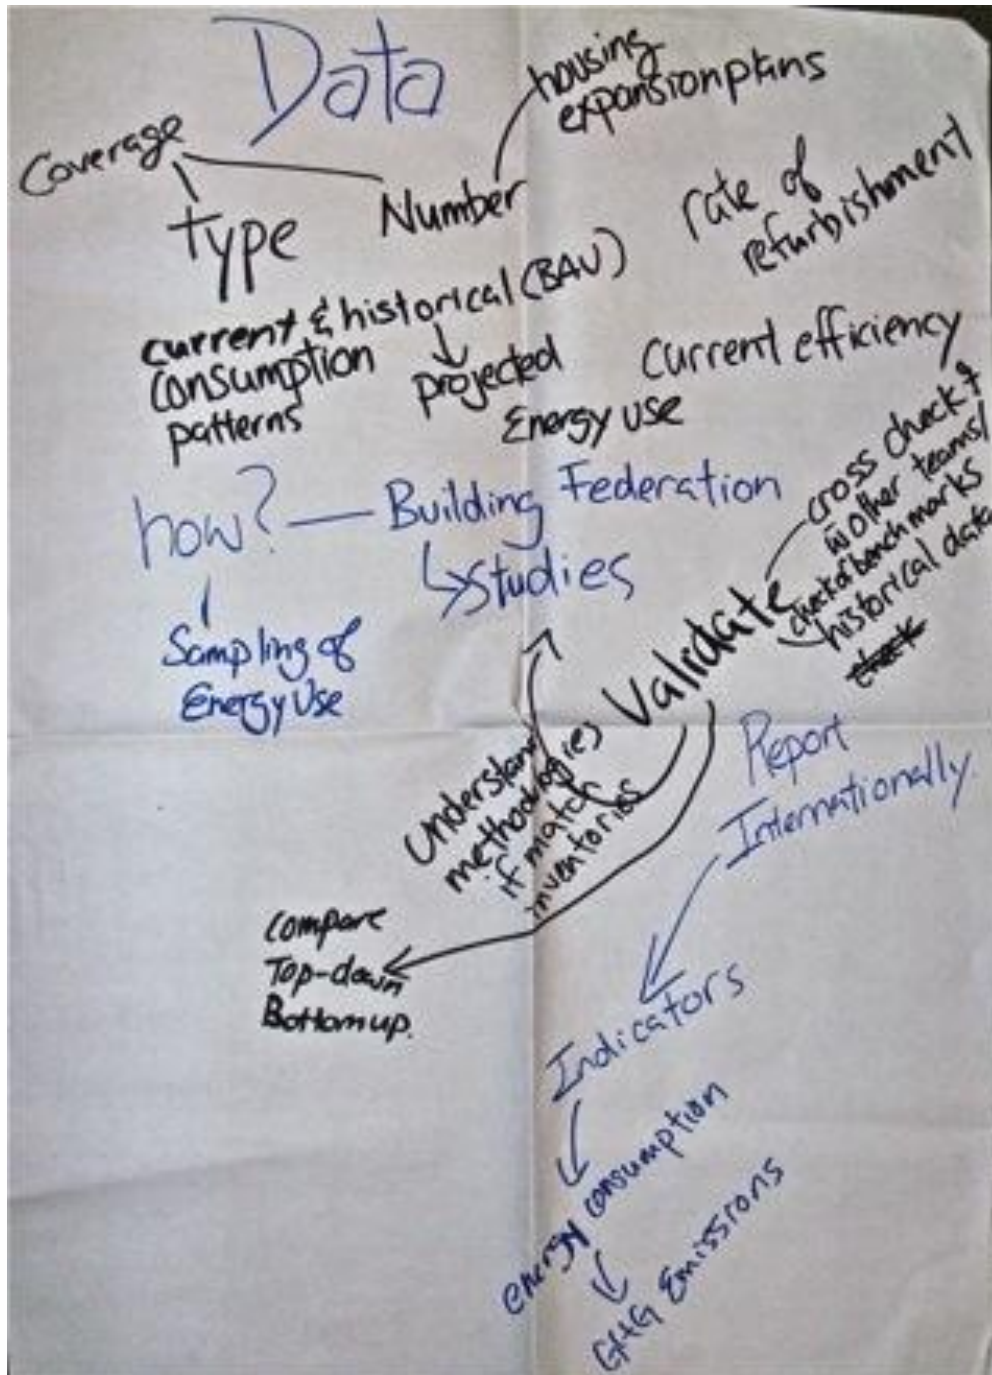 Data
housing
expansion plans
Coverage
Type
Number
rate of
refurbishment
current & historical (BAU)
consumption
patterns
projected
Energy use
current efficiency
how? — Building Federation
↳ studies
Sampling of
Energy Use
Validate
cross check
w other teams/
benchmarks
historical data
understand
methodologies
if match
inventories
compare
Top-down
Bottom up.
Report
Internationally.
Indicators
energy consumption
GHG Emissions